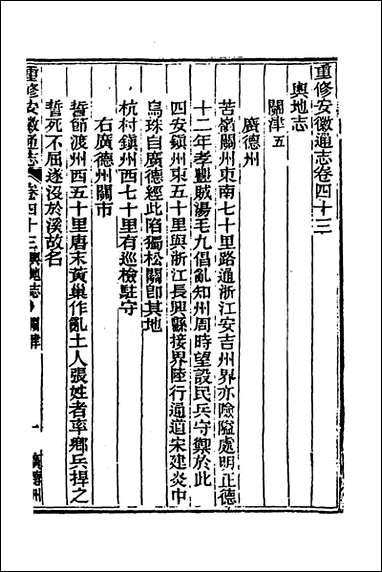 重修安徽通志卷四十三
輿地志
關津五
廣德州
苦嶺關州東南七十里路通浙江安吉州界亦險隘處明正德
十二年孝豐賊湯毛九倡亂知州周時望設民兵守禦於此
四安鎮州東五十里與浙江長興縣接界陸行通道宋建炎中
烏珠自廣德經此陷獨松關卽其地
杭村鎮州西七十里有巡檢駐守
右廣德州關市
誓節渡州西五十里唐末黃巢作亂土人張姓者率鄉兵捍之
誓死不屈遂沒於溪故名
重修安徽通志
卷四十三輿地志
關津
一
廣德州